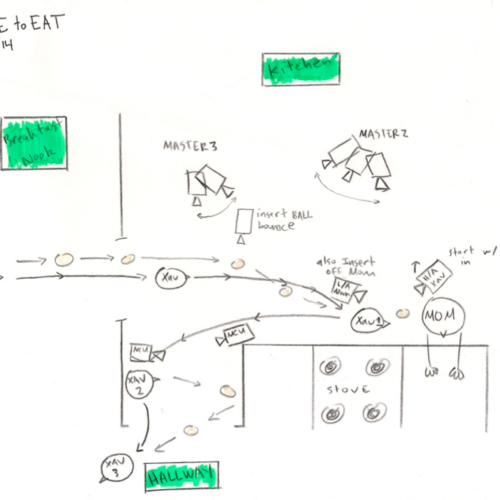 E to EAT
14
Kitchen
Breakfast
Nook
MASTER3
MASTER2
insert BALL
bounce
also Insert
off Mom
start w/
in
H/A
XAV
Xav
Xav1
MOM
MCU
MCU
XAV
2
STOVE
XAV
3
HALLWAY